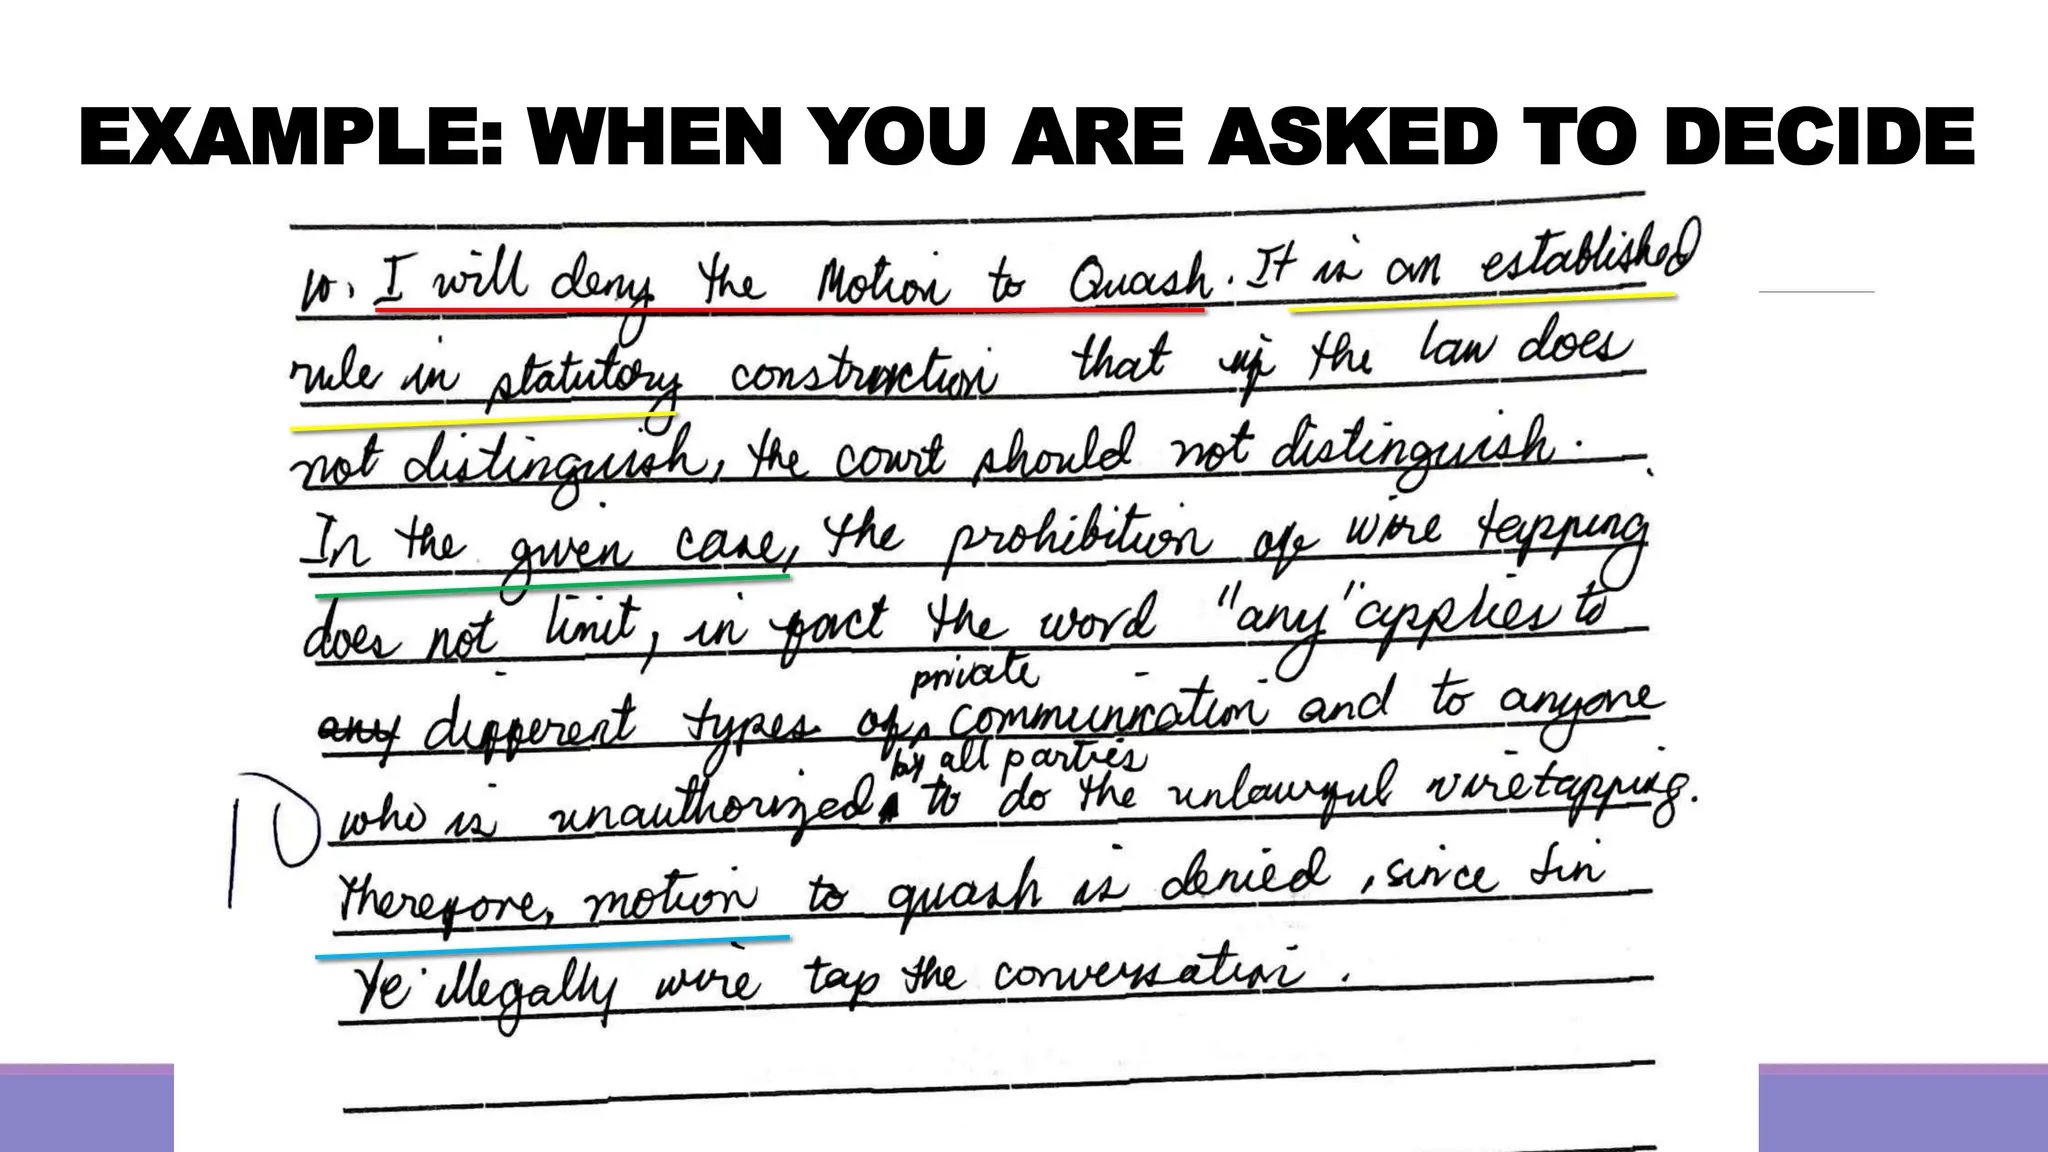 EXAMPLE: WHEN YOU ARE ASKED TO DECIDE
10. I will deny the Motion to Quash. It is an established
rule in statutory construction that if the law does
not distinguish, the court should not distinguish.
In the given case, the prohibition of wire tapping
does not limit, in fact the word "any" applies to
private
any different types of communication and to anyone
by all parties
who is unauthorized to do the unlawful wiretapping.
10
Therefore, motion to quash is denied, since Sin
Ye illegally wire tap the conversation.